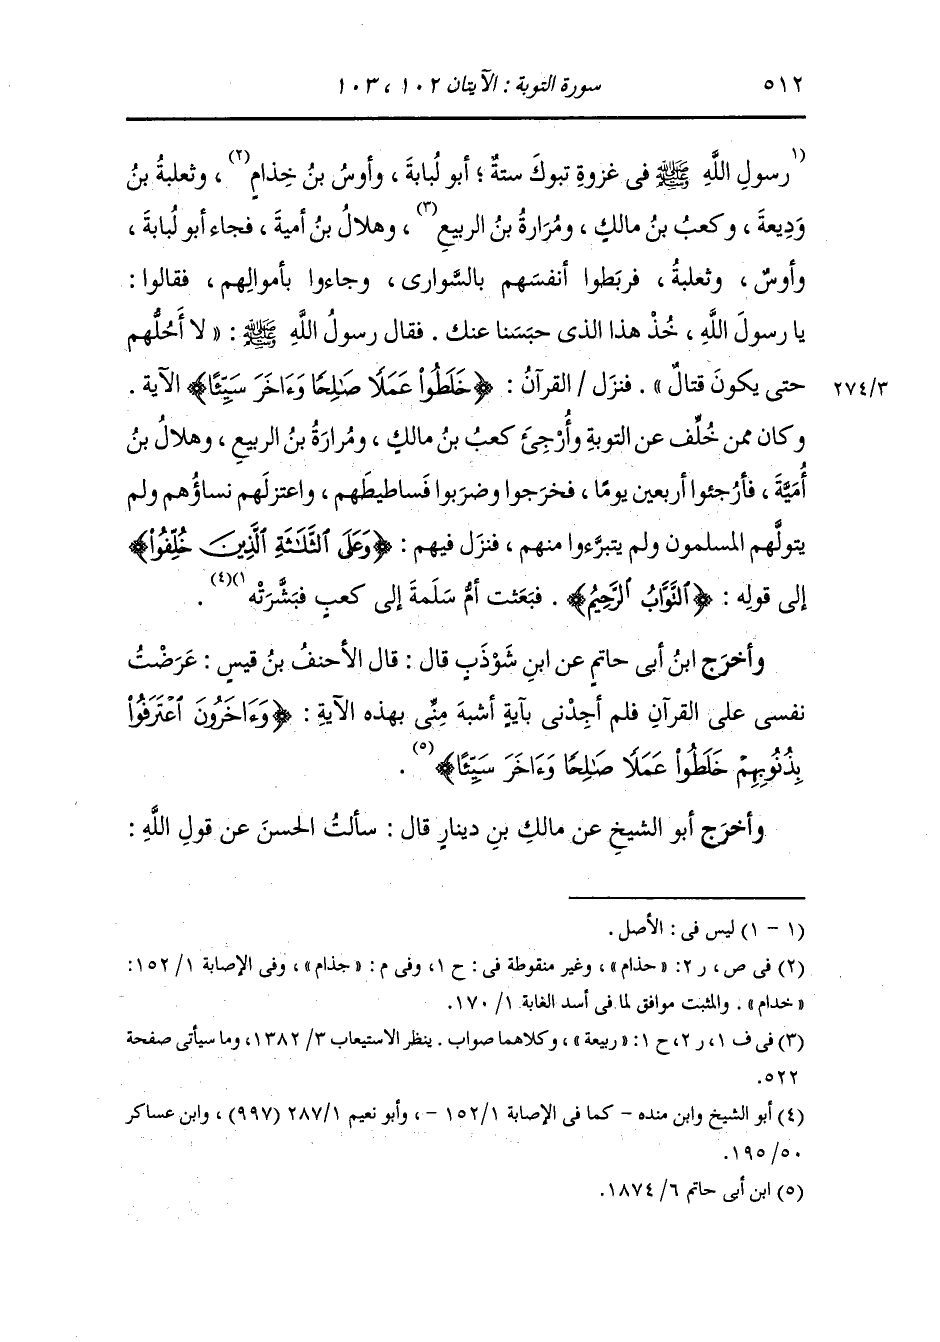 ٥١٢ سورة التوبة : الآيتان ١٠٢ ، ١٠٣
(١ رسولِ اللَّهِ ﷺ فى غزوةِ تبوكَ ستةٌ ؛ أبو لُبابةَ ، وأوسُ بنُ خِذامٍ(٢) ، وثعلبةُ بنُ
وَدِيعةَ ، وكعبُ بنُ مالكٍ ، ومُرَارةُ بنُ الربيعِ(٣) ، وهلالُ بنُ أميةَ ، فجاء أبو لُبابةَ ،
وأوسٌ ، وثعلبةُ ، فربَطوا أنفسَهم بالسَّوارى ، وجاءوا بأموالِهم ، فقالوا :
يا رسولَ اللَّهِ ، خُذْ هذا الذى حبَسَنا عنك . فقال رسولُ اللَّهِ ﷺ : « لا أَحُلُّهم
حتى يكونَ قتالٌ » . فنزَل / القرآنُ : ﴿خَلَطُواْ عَمَلًا صَٰلِحًا وَءَاخَرَ سَيِّئًا﴾ الآية . ٢٧٤/٣
وكان ممن خُلِّف عن التوبةِ وأُرْجِئَ كعبُ بنُ مالكٍ ، ومُرارةُ بنُ الربيعِ ، وهلالُ بنُ
أُمَيَّةَ ، فأُرْجئوا أربعين يومًا ، فخرَجوا وضرَبوا فَساطيطَهم ، واعتزلَهم نساؤُهم ولم
يتولَّهم المسلمون ولم يتبرَّءوا منهم ، فنزَل فيهم : ﴿وَعَلَى ٱلثَّلَٰثَةِ ٱلَّذِينَ خُلِّفُواْ﴾
إلى قولِه : ﴿ٱلتَّوَّابُ ٱلرَّحِيمُ﴾ . فبَعَثت أمُّ سَلَمةَ إلى كعبٍ فبَشَّرَتْه١)(٤) .
وأخرَج ابنُ أبى حاتمٍ عن ابنِ شَوْذَبٍ قال : قال الأحنفُ بنُ قيسٍ : عَرَضْتُ
نفسى على القرآنِ فلم أجِدْنى بآيةٍ أشبهَ مِنِّى بهذه الآيةِ : ﴿وَءَاخَرُونَ ٱعْتَرَفُواْ
بِذُنُوبِهِمْ خَلَطُواْ عَمَلًا صَٰلِحًا وَءَاخَرَ سَيِّئًا﴾(٥) .
وأخرَج أبو الشيخِ عن مالكِ بنِ دينارٍ قال : سألتُ الحسنَ عن قولِ اللَّهِ :
(١ - ١) ليس فى : الأصل .
(٢) فى ص ، ر ٢: « حذام » ، وغير منقوطة فى : ح ١، وفى م : « جذام » ، وفى الإصابة ١/ ١٥٢:
« خدام » . والمثبت موافق لما فى أسد الغابة ١/ ١٧٠.
(٣) فى ف ١، ر ٢، ح ١: « ربيعة » ، وكلاهما صواب . ينظر الاستيعاب ٣/ ١٣٨٢، وما سيأتى صفحة
٥٢٢.
(٤) أبو الشيخ وابن منده - كما فى الإصابة ١٥٢/١ - ، وأبو نعيم ٢٨٧/١ (٩٩٧) ، وابن عساكر
٥٠/ ١٩٥.
(٥) ابن أبى حاتم ٦/ ١٨٧٤.